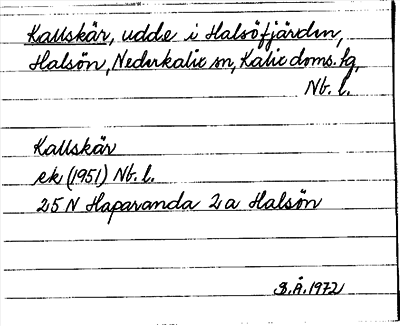 Kallskär, udde i Halsöfjärden,
Halsön, Nederkalix sn, Kalix doms. tg,
Nb. l.
Kallskär
ek (1951) Nb. l.
25 N Haparanda 2 a Halsön
S.Å. 1972